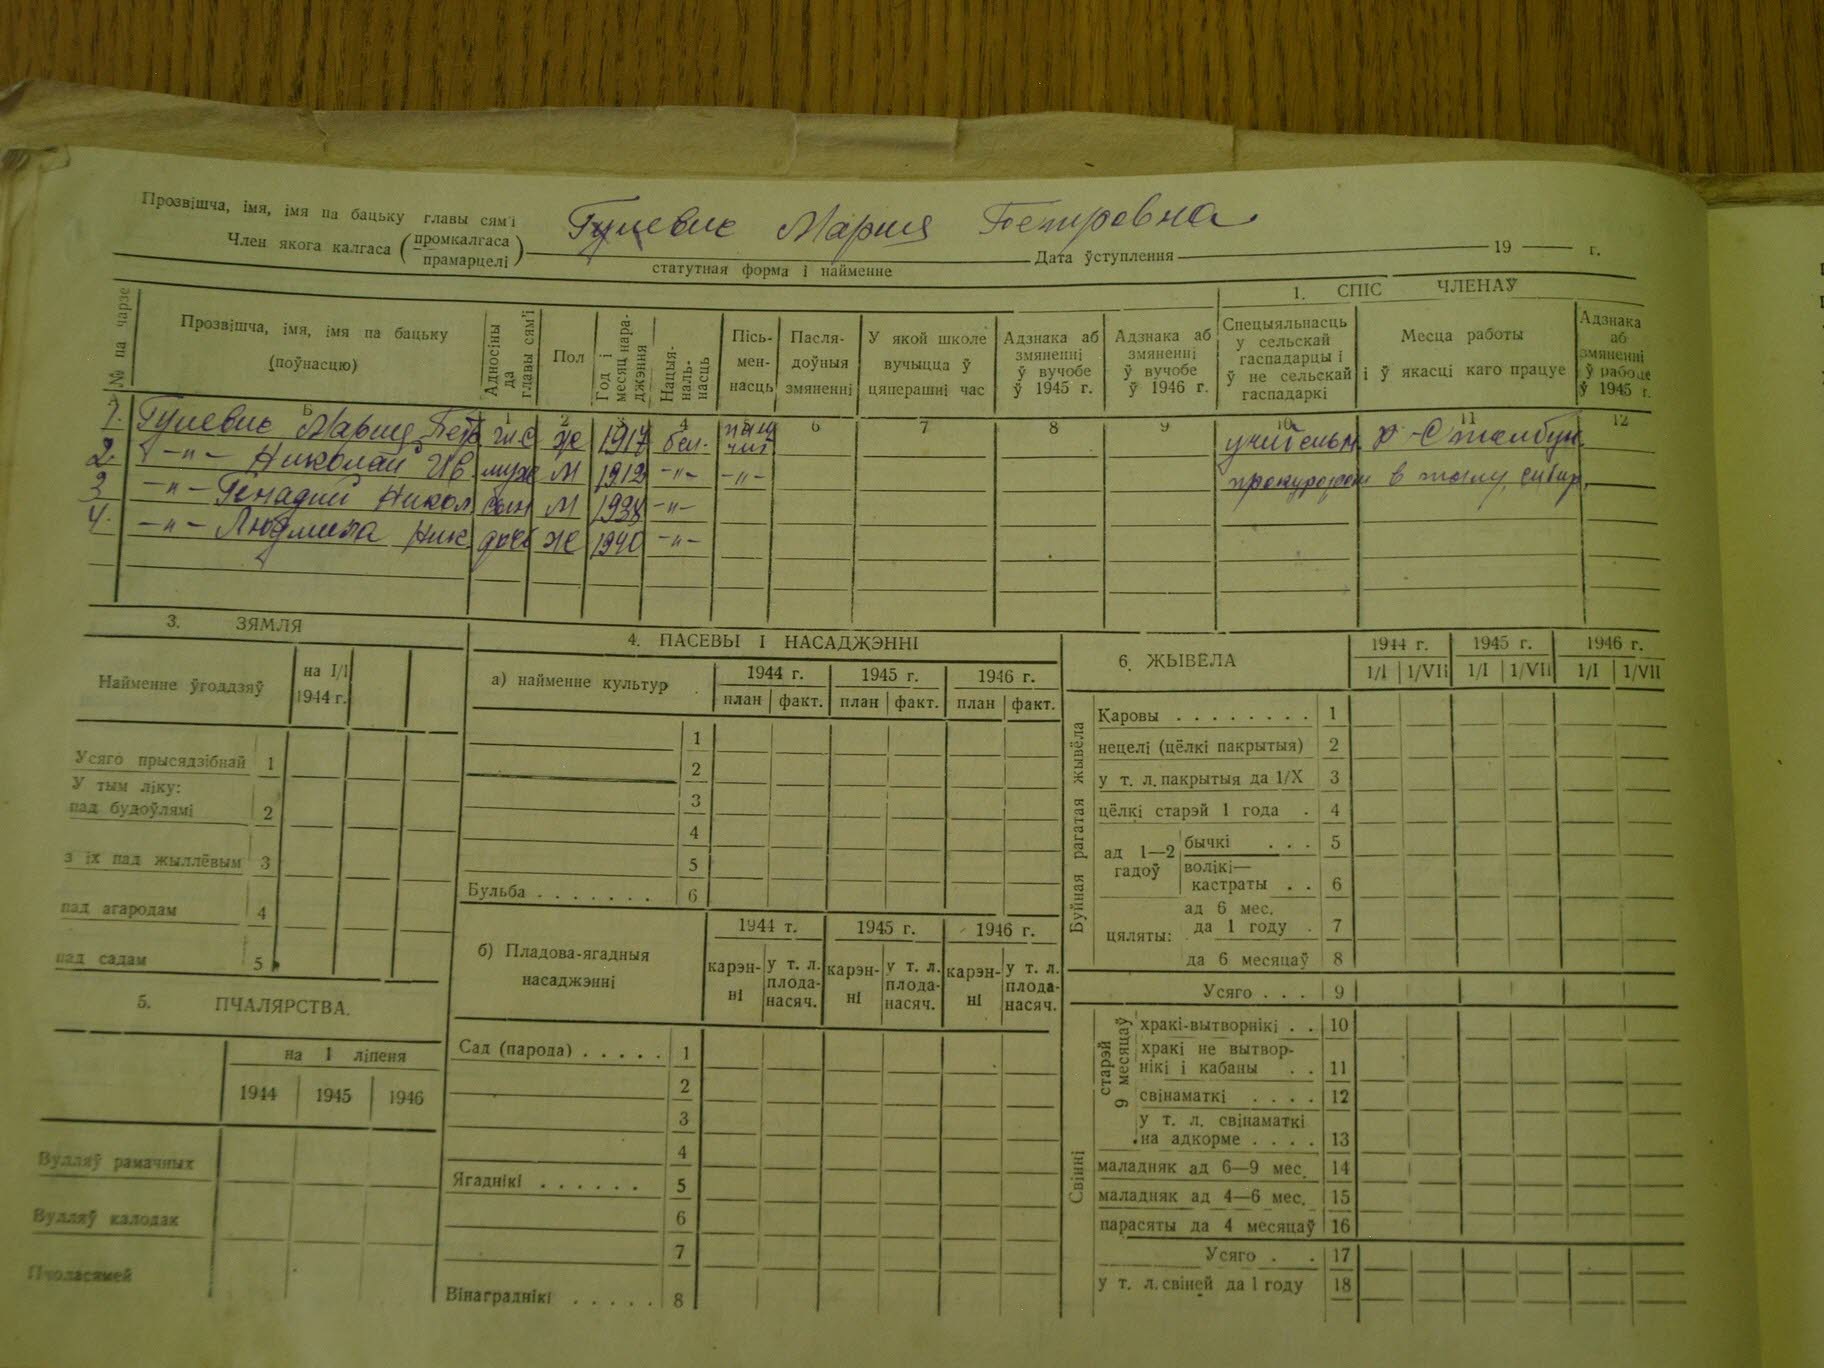 Прозвішча, імя, імя па бацьку главы сям'і Гулевис Мария Петровна
Член якога калгаса (промкалгаса прамарцелі) Дата ўступлення 19 г.
статутная форма і найменне
1. СПІС ЧЛЕНАЎ
№ па чарзе
Прозвішча, імя, імя па бацьку (поўнасцю)
Адносіны да главы сям'і
Пол
Год і месяц нараджэння
Нацыянальнасць
Пісьменнасць
Паслядоўныя змяненні
У якой школе вучыцца ў цяперашні час
Адзнака аб змяненні ў вучобе ў 1945 г.
Адзнака аб змяненні ў вучобе ў 1946 г.
Спецыяльнасць у сельскай гаспадарцы і ў не сельскай гаспадаркі
Месца работы і ў якасці каго працуе
Адзнака аб змяненні ў рабоце ў 1945 г.
Б 1 2 3 4 5 6 7 8 9 10 11 12
1. Гулевис Мария Петр гл.с же 1917 бел.
2. -"- Николай Ив муж М 1912 -"- -"-
3 -"- Генадий Никол сын М 1938 -"-
4. -"- Людмила Ник доч же 1940 -"-
3. ЗЯМЛЯ
Найменне ўгоддзяў
на 1/І 1944 г.
Усяго прысядзібнай 1
У тым ліку:
пад будоўлямі 2
з іх пад жыллёвым 3
пад агародам 4
пад садам 5
5. ПЧАЛЯРСТВА.
на 1 ліпеня
1944 1945 1946
Вулляў рамачных
Вулляў калодак
Пчоласямей
4. ПАСЕВЫ І НАСАДЖЭННІ
а) найменне культур
1944 г. 1945 г. 1946 г.
план факт. план факт. план факт.
1
2
3
4
5
Бульба . . . . . . . 6
б) Пладова-ягадныя насаджэнні
1944 т. 1945 г. 1946 г.
карэнні у т. л. плоданасяч. карэнні у т. л. плоданасяч. карэнні у т. л. плоданасяч.
Сад (парода) . . . . . 1
2
3
4
Ягаднікі . . . . . . 5
6
7
Вінаграднікі . . . . . 8
6. ЖЫВЁЛА
1944 г. 1945 г. 1946 г.
1/I 1/VII 1/I 1/VII 1/I 1/VII
Буйная рагатая жывёла
Каровы . . . . . . . . 1
нецелі (цёлкі пакрытыя) 2
у т. л. пакрытыя да 1/X 3
цёлкі старэй 1 года . 4
ад 1—2 гадоў
бычкі . . . 5
волікі—кастраты . . 6
цяляты:
ад 6 мес. да 1 году . 7
да 6 месяцаў 8
Усяго . . . 9
Свінні
старэй 9 месяцаў
хракі-вытворнікі . . 10
хракі не вытворнікі і кабаны . . 11
свінаматкі . . . . 12
у т. л. свінаматкі на адкорме . . . . 13
маладняк ад 6—9 мес. 14
маладняк ад 4—6 мес. 15
парасяты да 4 месяцаў 16
Усяго . . 17
у т. л. свіней да 1 году 18